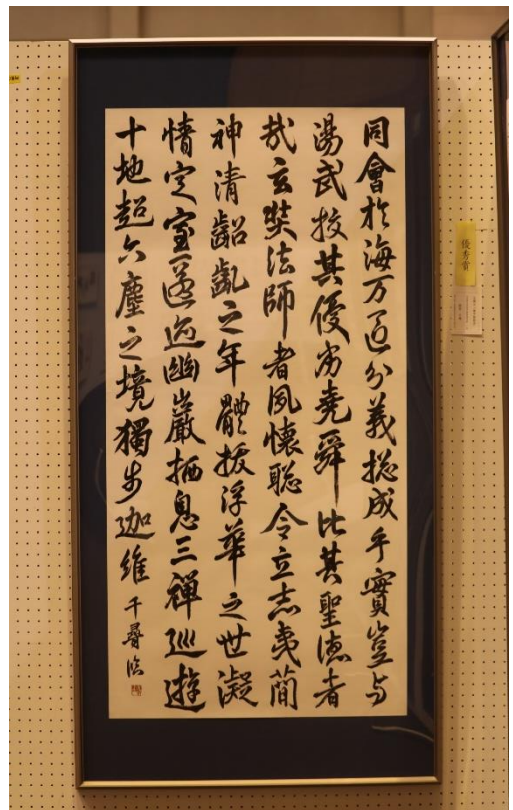 同會於海万區分義揔成乎實豈与
湯武挍其優劣堯舜比其聖德者
哉玄奘法師者夙懷聡令立志夷簡
神清齠齓之年體拔浮華之世凝
情定室匿迹幽巖栖息三禅巡遊
十地超六塵之境獨步迦維 千尋臨
優秀賞